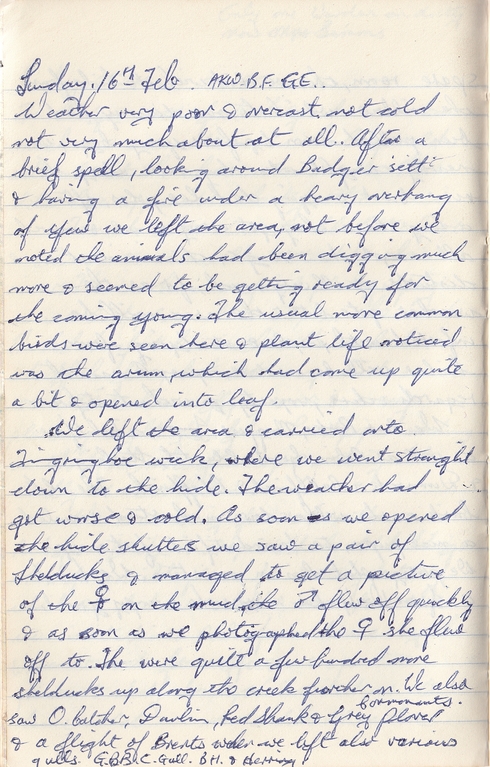 Sunday. 16th Feb. AKW. B.F. G.E..
Weather very poor & overcast, not cold
not very much about at all. After a
brief spell, looking around Badger 'sett'
& having a fire under a heavy overhang
of yew we left the area, not before we
noted the animals had been digging much
more & seemed to be getting ready for
the coming young. The usual more common
birds were seen here & plant life noticed
was the arum, which had come up quite
a bit & opened into leaf.
We left the area & carried onto
Fingringhoe wick, where we went straight
down to the hide. The weather had
got worse & cold. As soon as we opened
the hide shutters we saw a pair of
Shelducks & managed to get a picture
of the ♀ on the mud, the ♂ flew off quickly
& as soon as we photographed the ♀ she flew
off to. The were quite a few hundred more
shelducks up along the creek further on. We also
Cormorants.
saw O. catcher, Dunlin, Red Shank & Grey Plover
& a flight of Brents when we left also various
gulls. G.B.B. C. Gull. B.H. & Herring